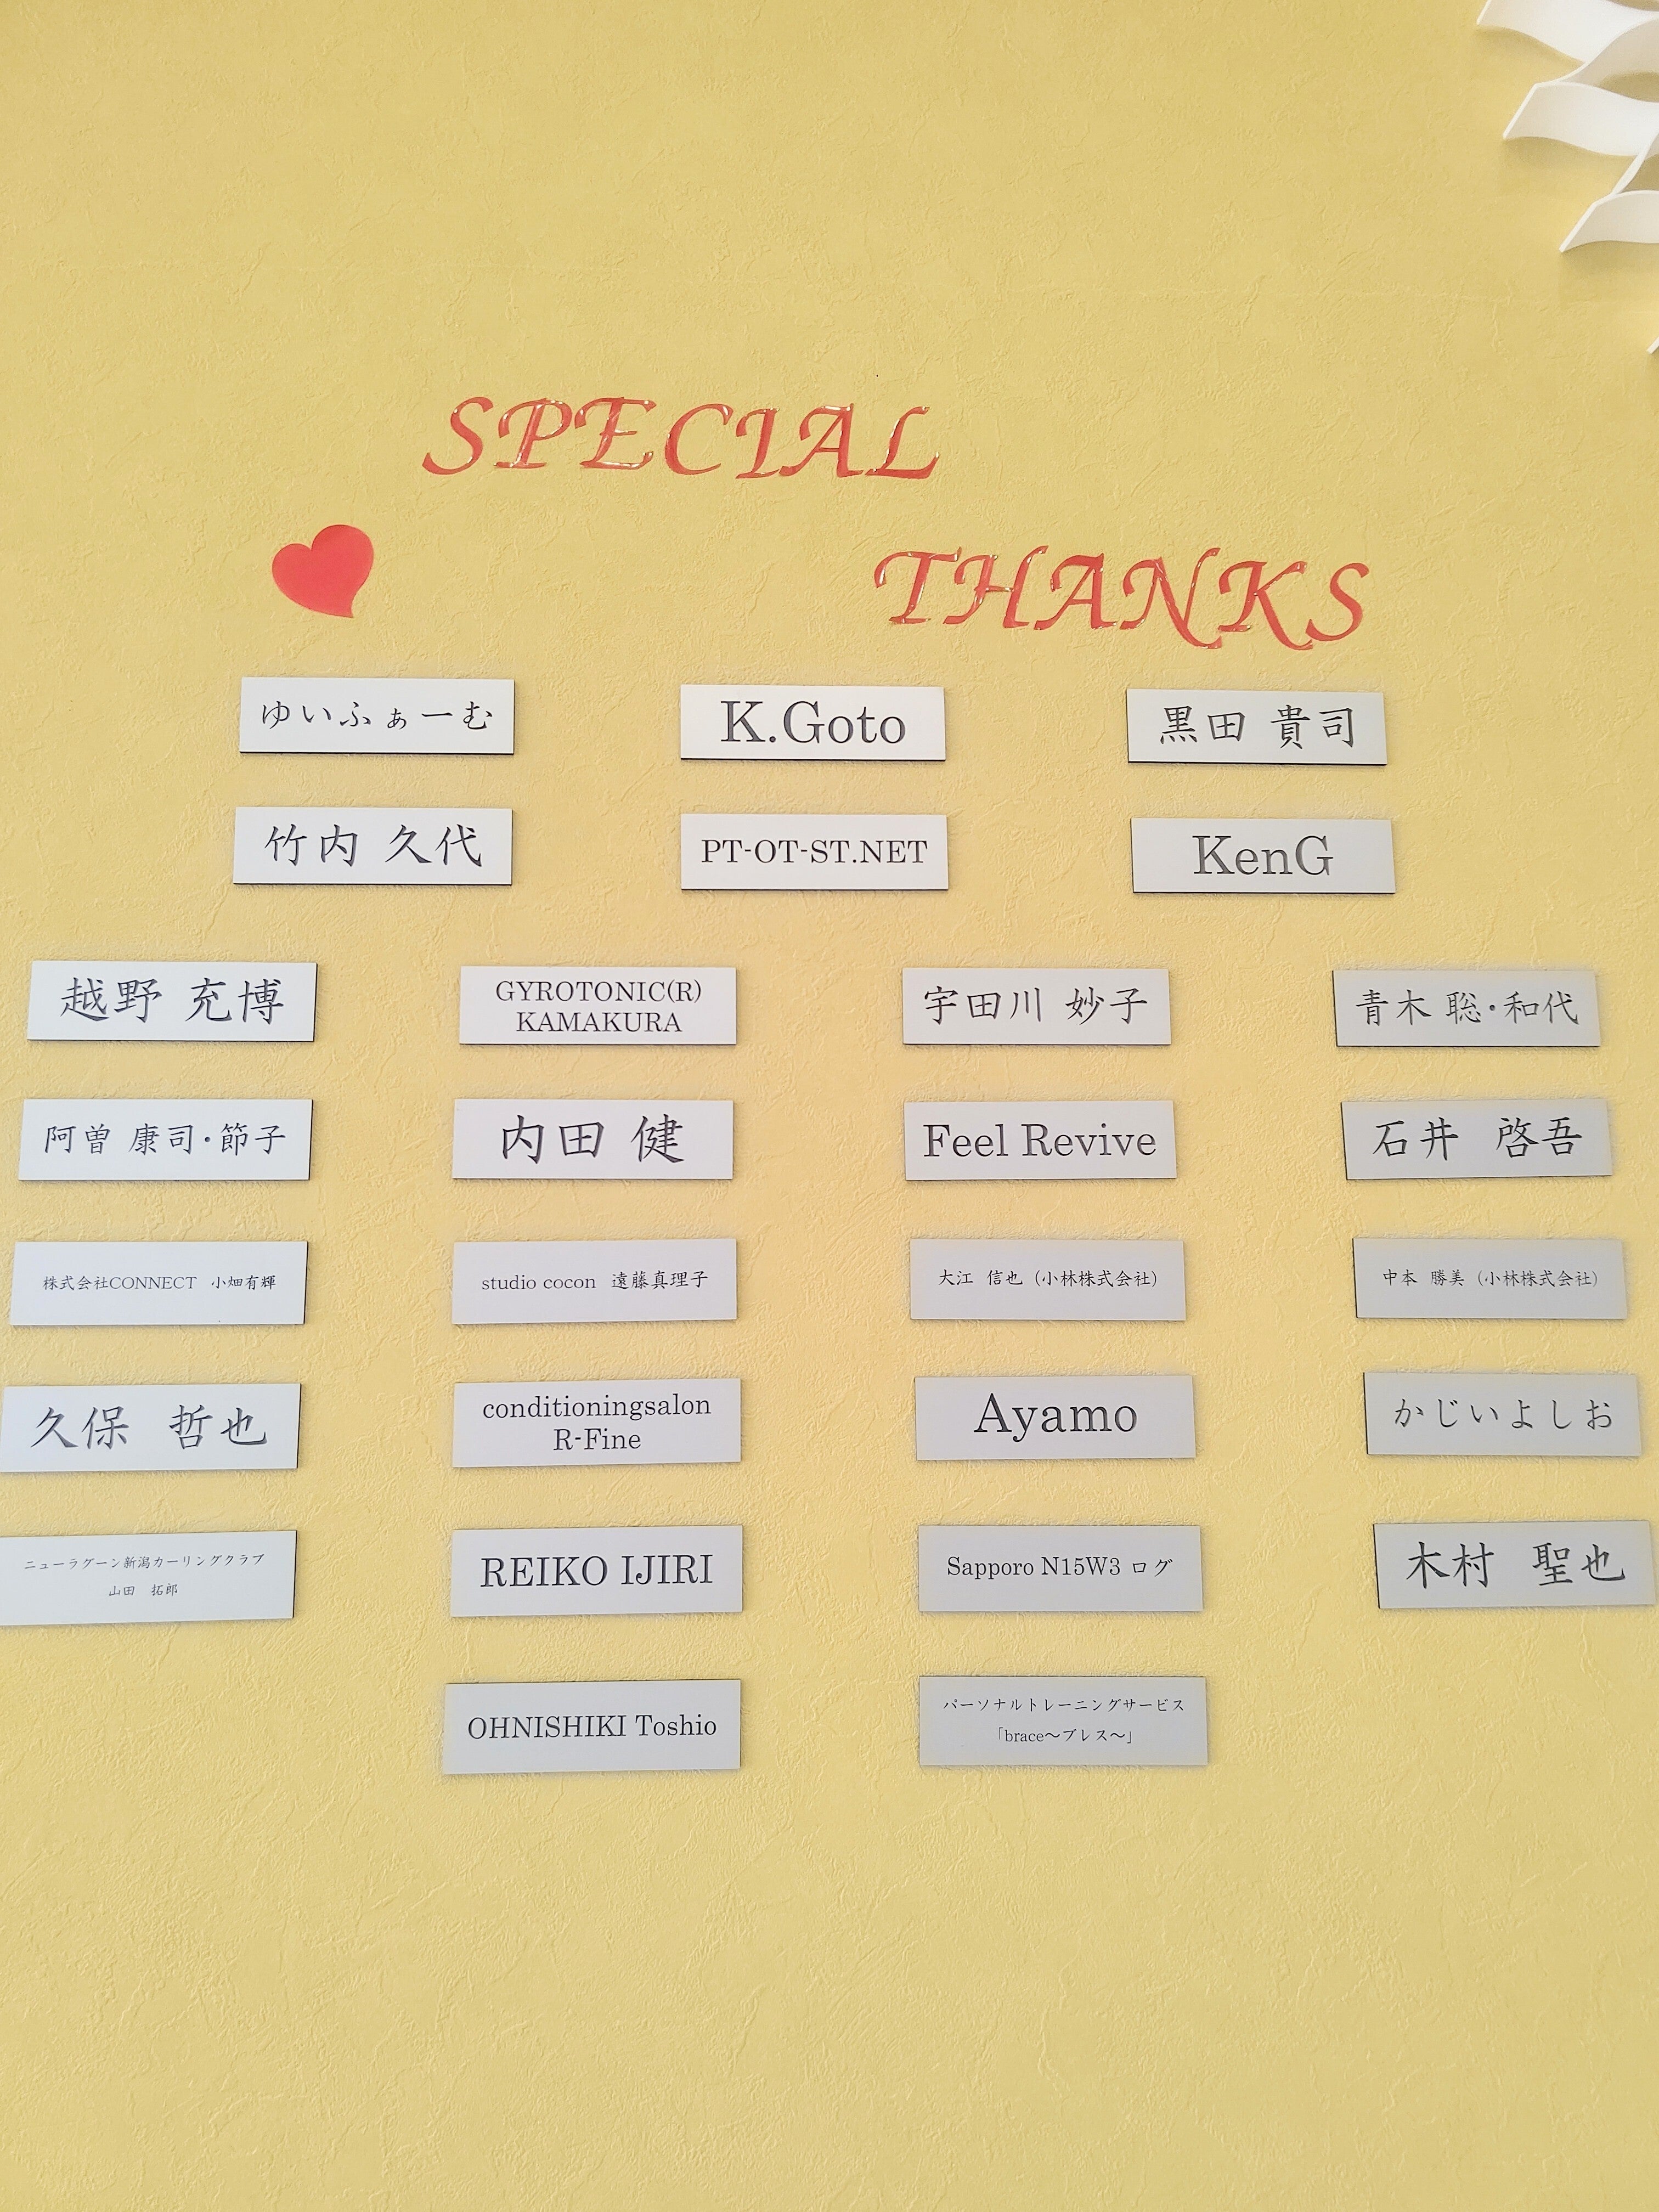 SPECIAL
THANKS
ゆいふぁーむ
K.Goto
黒田 貴司
竹内 久代
PT-OT-ST.NET
KenG
越野 充博
GYROTONIC(R)
KAMAKURA
宇田川 妙子
青木 聡・和代
阿曽 康司・節子
内田 健
Feel Revive
石井 啓吾
株式会社CONNECT 小畑有輝
studio cocon 遠藤真理子
大江 信也（小林株式会社）
中本 勝美（小林株式会社）
久保 哲也
conditioningsalon
R-Fine
Ayamo
かじいよしお
ニューラグーン新潟カーリングクラブ
山田 拓郎
REIKO IJIRI
Sapporo N15W3 ログ
木村 聖也
OHNISHIKI Toshio
パーソナルトレーニングサービス
「brace～ブレス～」